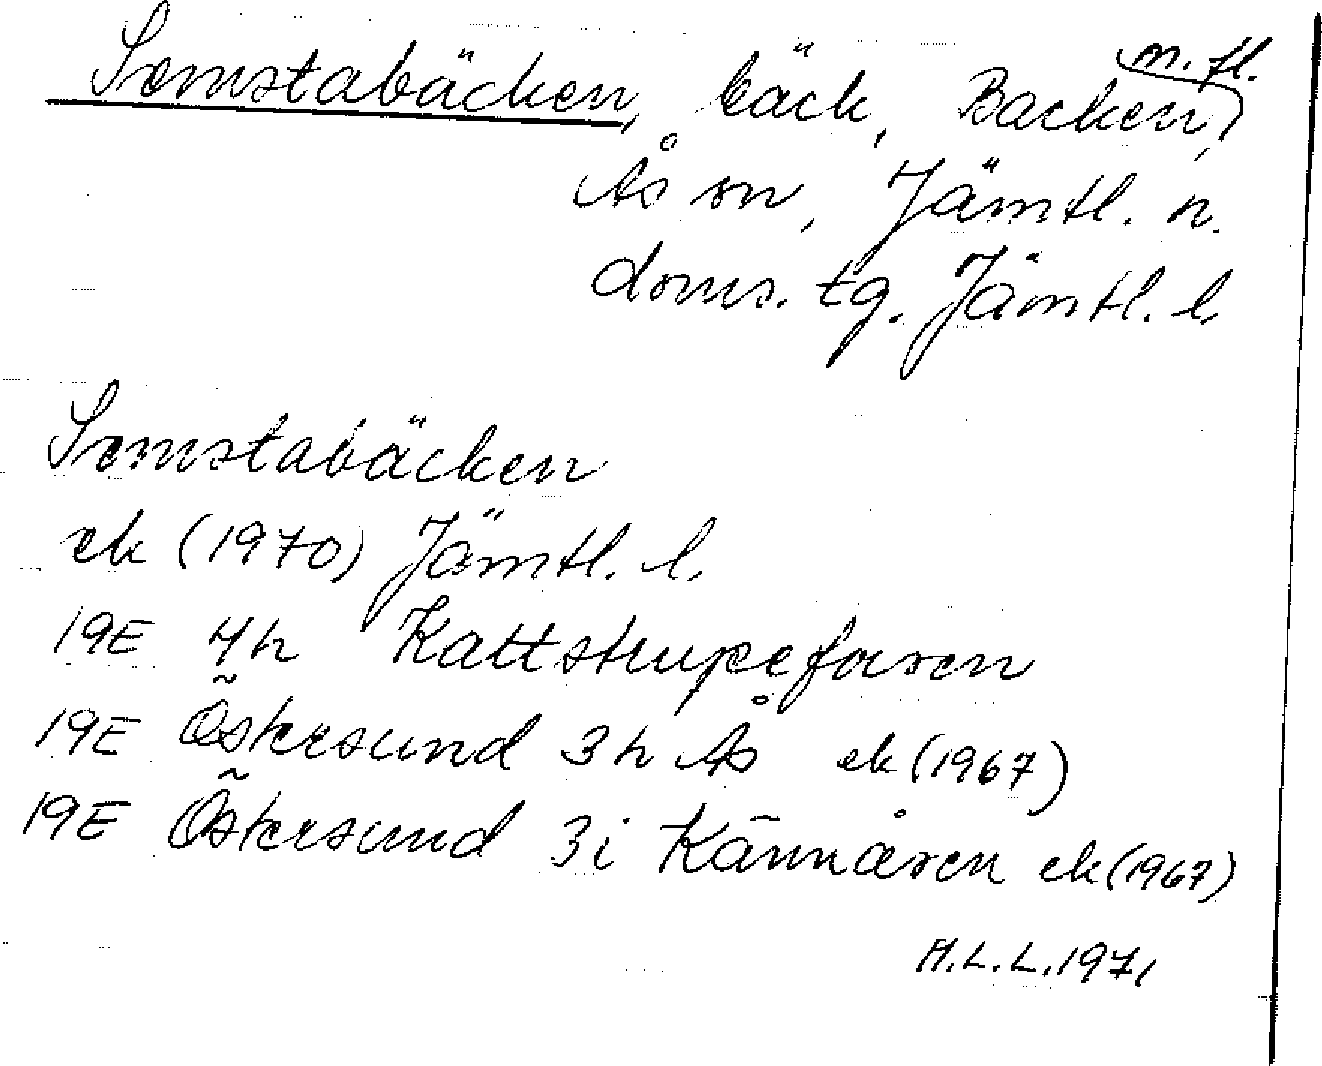 Semstabäcken, bäck, Backen, m. fl.
Ås sn, Jämtl. n.
doms. tg. Jämtl. l.
Semstabäcken
ek (1970) Jämtl. l.
19E 4h Kattstrupeforsen
19E Östersund 3h Ås ek (1967)
19E Östersund 3i Kännåsen ek (1967)
M.L.L. 1971